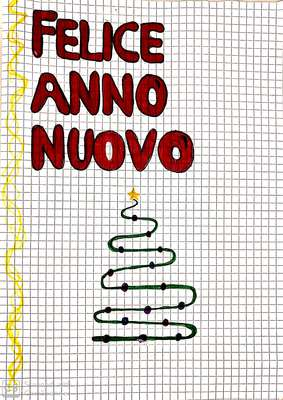 FELICE
ANNO
NUOVO